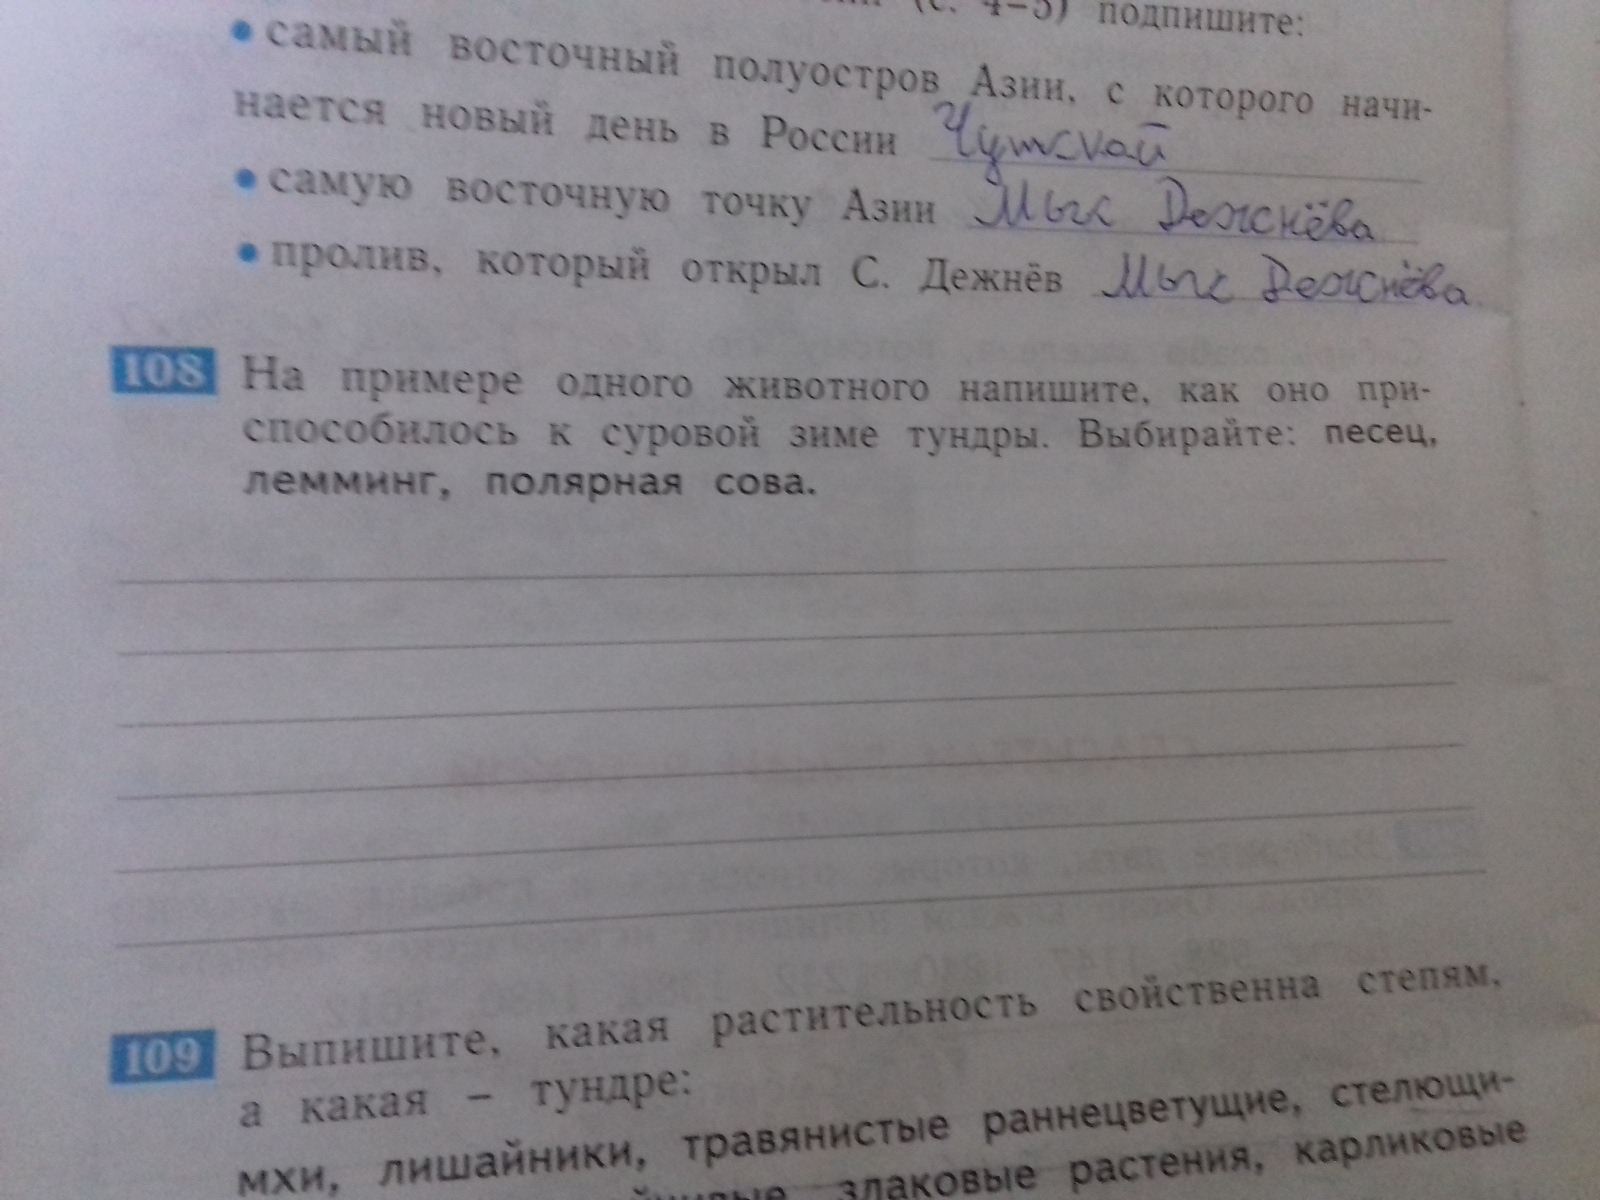 (с. 4–5) подпишите:
• самый восточный полуостров Азии, с которого начи-
нается новый день в России Чутской
• самую восточную точку Азии Мыс Дежнёва
• пролив, который открыл С. Дежнёв Мыс Дежнёва
108 На примере одного животного напишите, как оно при-
способилось к суровой зиме тундры. Выбирайте: песец,
лемминг, полярная сова.
109 Выпишите, какая растительность свойственна степям,
а какая – тундре:
мхи, лишайники, травянистые раннецветущие, стелющи-
злаковые растения, карликовые